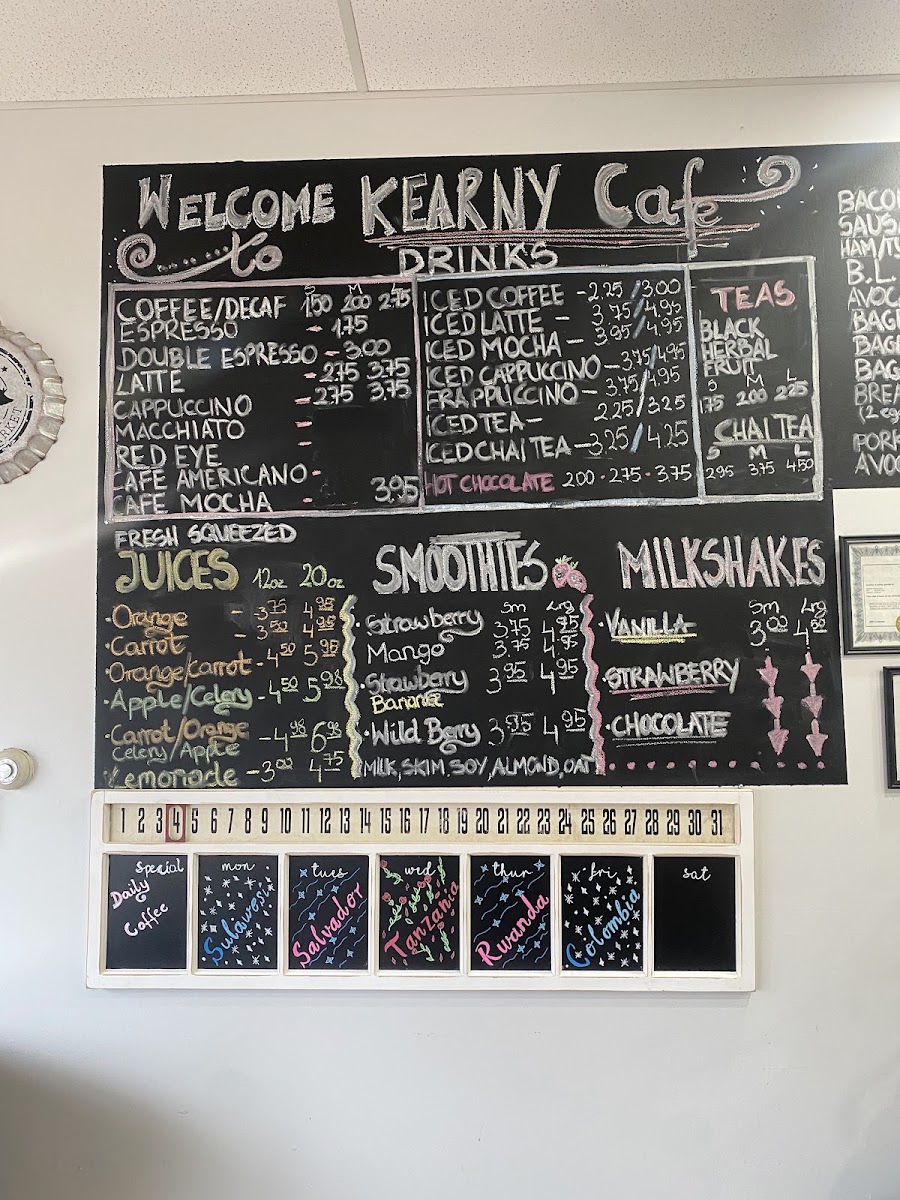 WELCOME KEARNY Cafe
to
DRINKS
S M L
COFFEE/DECAF 1.50 200 2.75
ESPRESSO - 1.75
DOUBLE ESPRESSO - 3.00
LATTE - 2.75 3.75
CAPPUCCINO - 2.75 3.75
MACCHIATO -
RED EYE -
CAFE AMERICANO -
CAFE MOCHA - 3.95
ICED COFFEE - 2.25 / 3.00
ICED LATTE - 3.75 / 4.95
ICED MOCHA - 3.95 / 4.95
ICED CAPPUCCINO - 3.75 / 4.95
FRAPPUCCINO - 3.75 / 4.95
ICED TEA - 2.25 / 3.25
ICED CHAI TEA - 3.25 / 4.25
HOT CHOCOLATE 200 - 2.75 - 3.75
TEAS
BLACK
HERBAL
FRUIT
S M L
1.75 200 2.25
CHAI TEA
S M L
2.95 3.75 4.50
FRESH SQUEEZED
JUICES 12oz 20oz
·Orange - 3.75 4.95
·Carrot - 3.50 4.95
·Orange/carrot - 4.50 5.95
·Apple/Celery - 4.50 5.98
·Carrot/Orange - 4.98 6.98
Celery/Apple
Lemonade - 3.00 4.75
SMOOTHIES
Sm Lrg
·Strawberry 3.75 4.95
Mango 3.75 4.95
·Strawberry 3.95 4.95
Banana
·Wild Berry 3.95 4.95
MILK, SKIM, SOY, ALMOND, OAT
MILKSHAKES
Sm Lrg
·VANILLA 3.00 4.50
·STRAWBERRY
·CHOCOLATE
BACO
SAUSA
HAM/TU
B.L.
AVOC
BAG
BAG
BAG
BREA
(2 eg
PORK
AVOC
1 2 3 4 5 6 7 8 9 10 11 12 13 14 15 16 17 18 19 20 21 22 23 24 25 26 27 28 29 30 31
Special
Daily
Coffee
mon
Sulawesi
tues
Salvador
wed
Tanzania
thur
Rwanda
fri
Colombia
sat